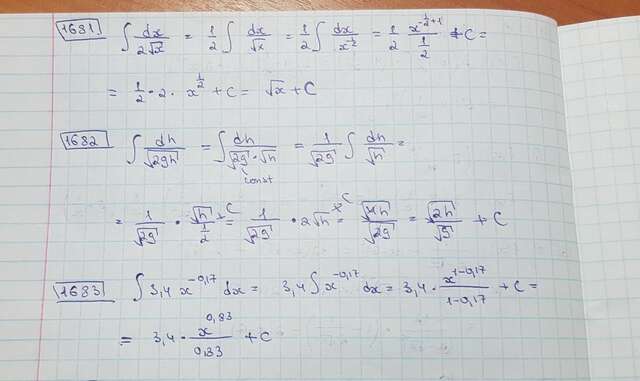 1681 ∫ dx/(2√x) = 1/2 ∫ dx/√x = 1/2 ∫ dx/x^(1/2) = 1/2 x^(-1/2+1)/(1/2) + C =
= 1/2 · 2 · x^(1/2) + C = √x + C
1682 ∫ dh/√(2gh) = ∫ dh/(√(2g) · √h) = 1/√(2g) ∫ dh/√h =
const
= 1/√(2g) · √h/(1/2) + C = 1/√(2g) · 2√h + C = √(4h)/√(2g) = √(2h)/√g + C
1683 ∫ 3,4 x^(-0,17) dx = 3,4 ∫ x^(-0,17) dx = 3,4 · x^(1-0,17)/(1-0,17) + C =
= 3,4 · x^(0,83)/0,83 + C